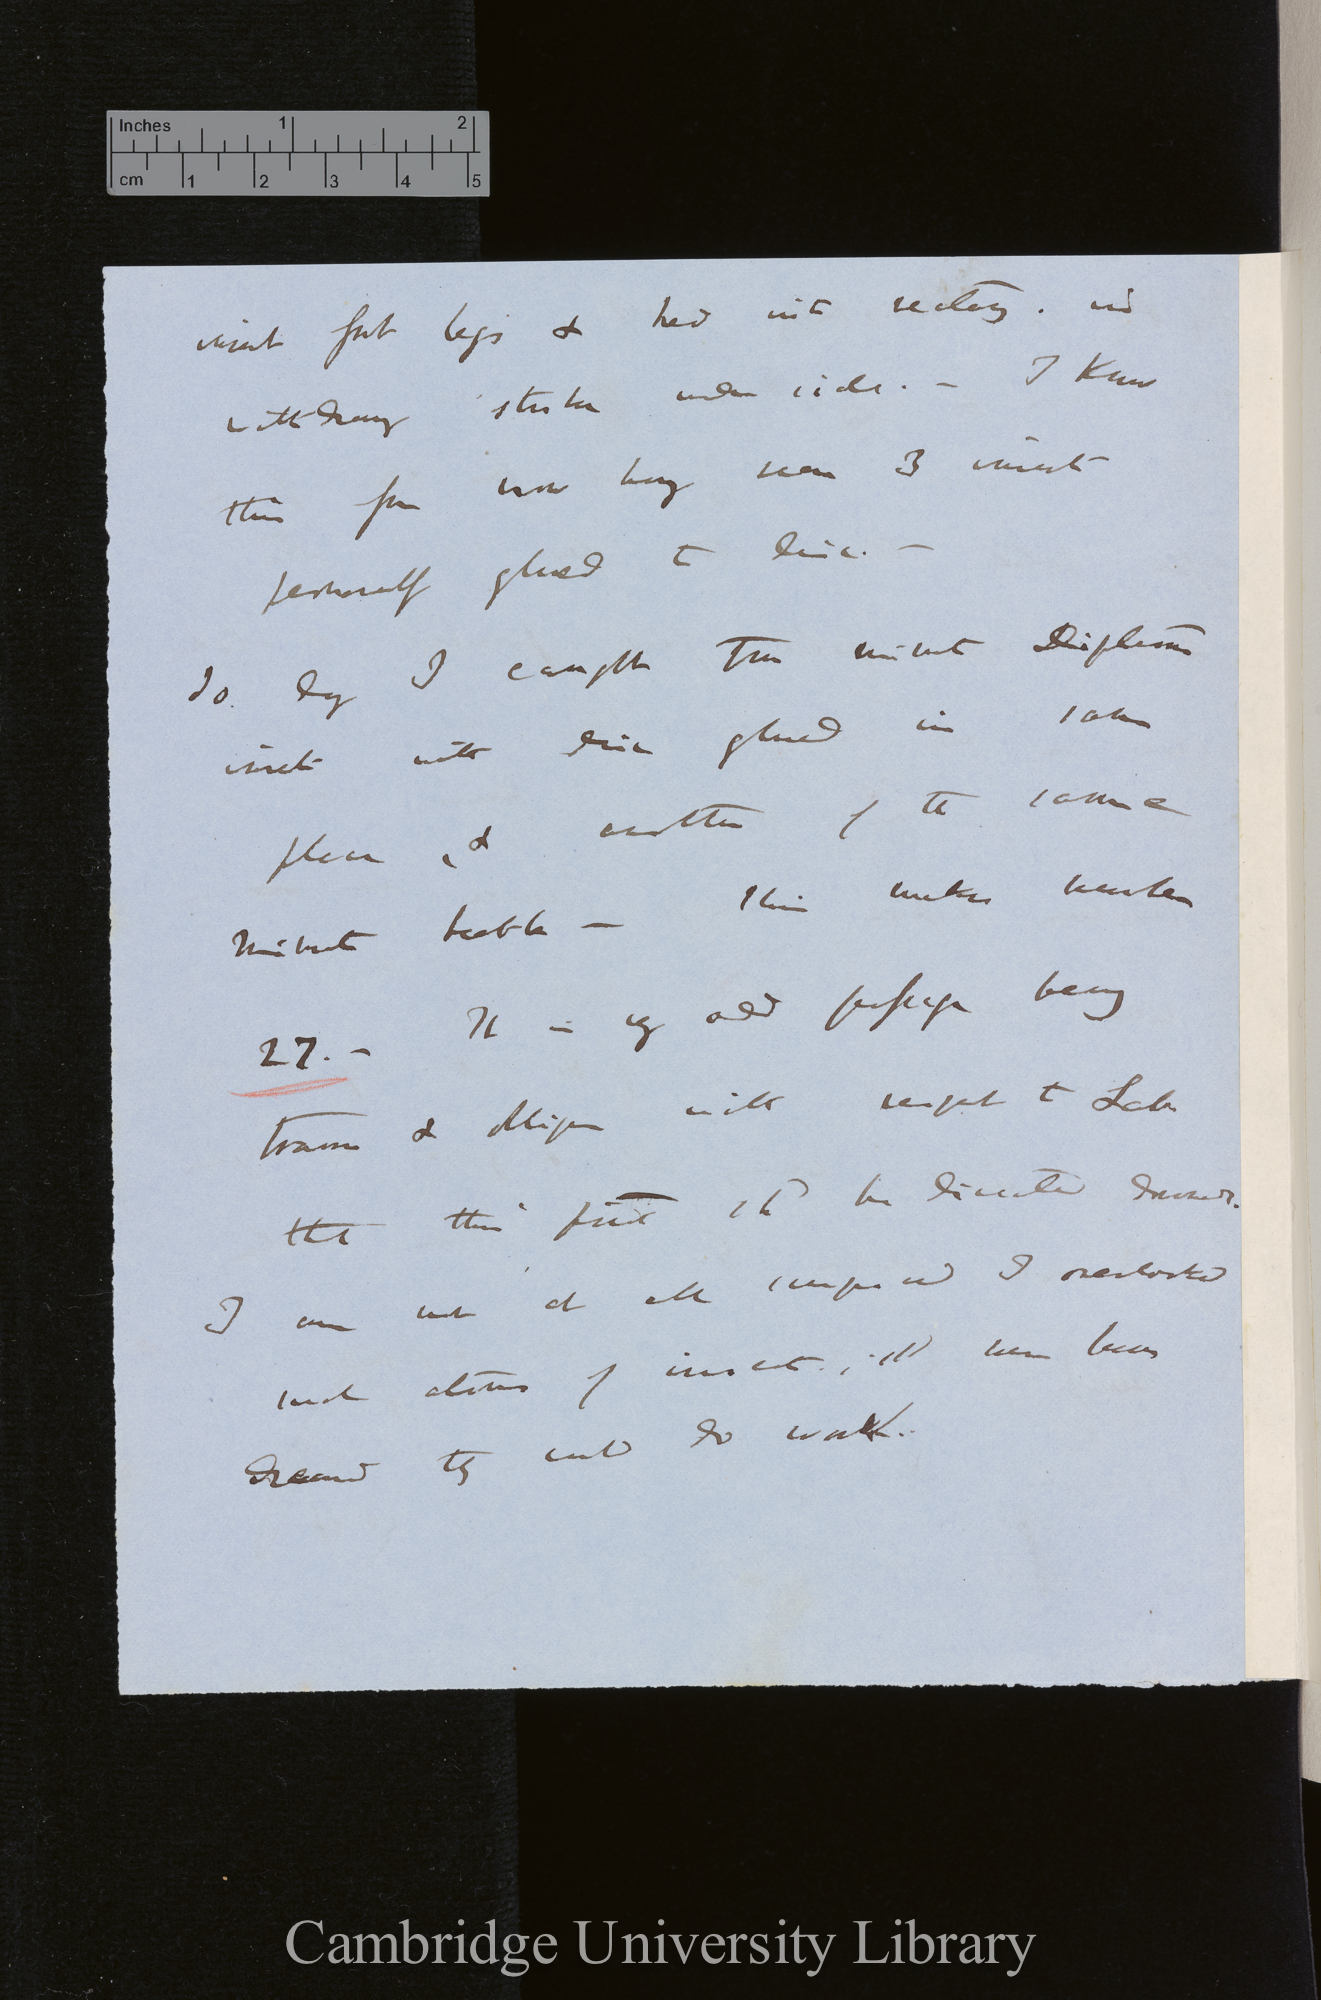 Inches 1 2
cm 1 2 3 4 5
insect front legs & head into nectary. and
withdrawing strikes under side. — I know
this from now having seen 3 insects
personally glued to disc. —
To day I caught two minute Dipterous
insects with disc glued in same
place & another of the same
minute beetle — This makes number
27. — It is odd perhaps being
with respect to
that this point shd be directed downwards.
I am not at all surprised I overlooked
such atoms of insects, & shd never have
dreamed they could do work.
Cambridge University Library